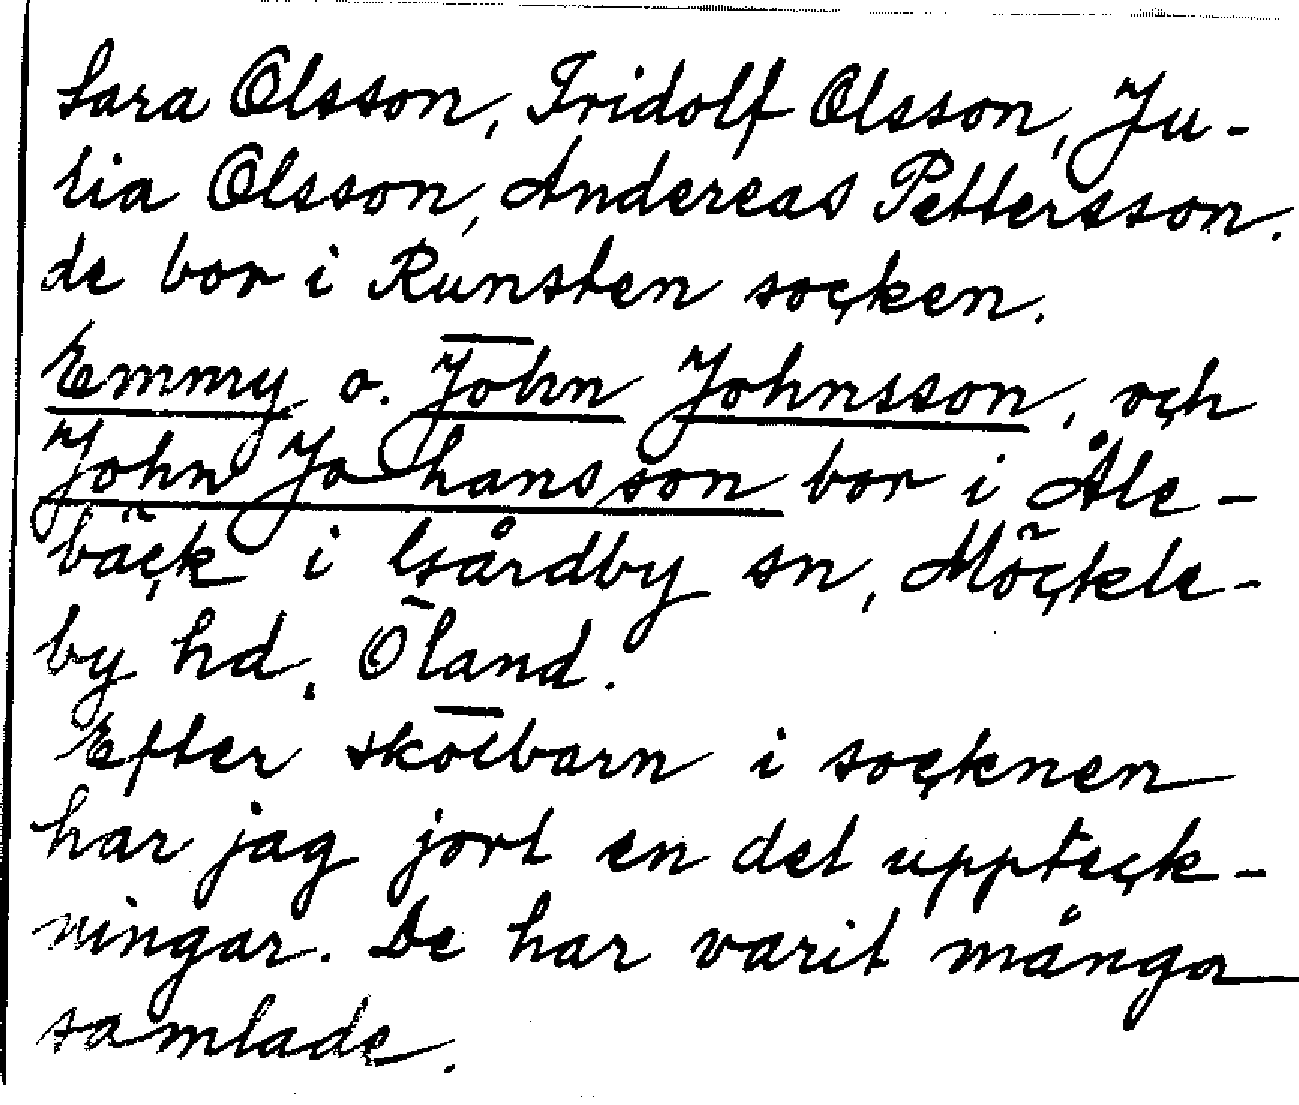 Sara Olsson, Fridolf Olsson, Ju-
lia Olsson, Andereas Pettersson.
de bor i Runsten socken.
Emmy o. John Johnsson, och
John Johansson bor i Åle-
bäck i Gårdby sn, Möckle-
by hd. Öland.
Efter skolbarn i socknen
har jag jort en det uppteck-
ningar. De har varit många
samlade.